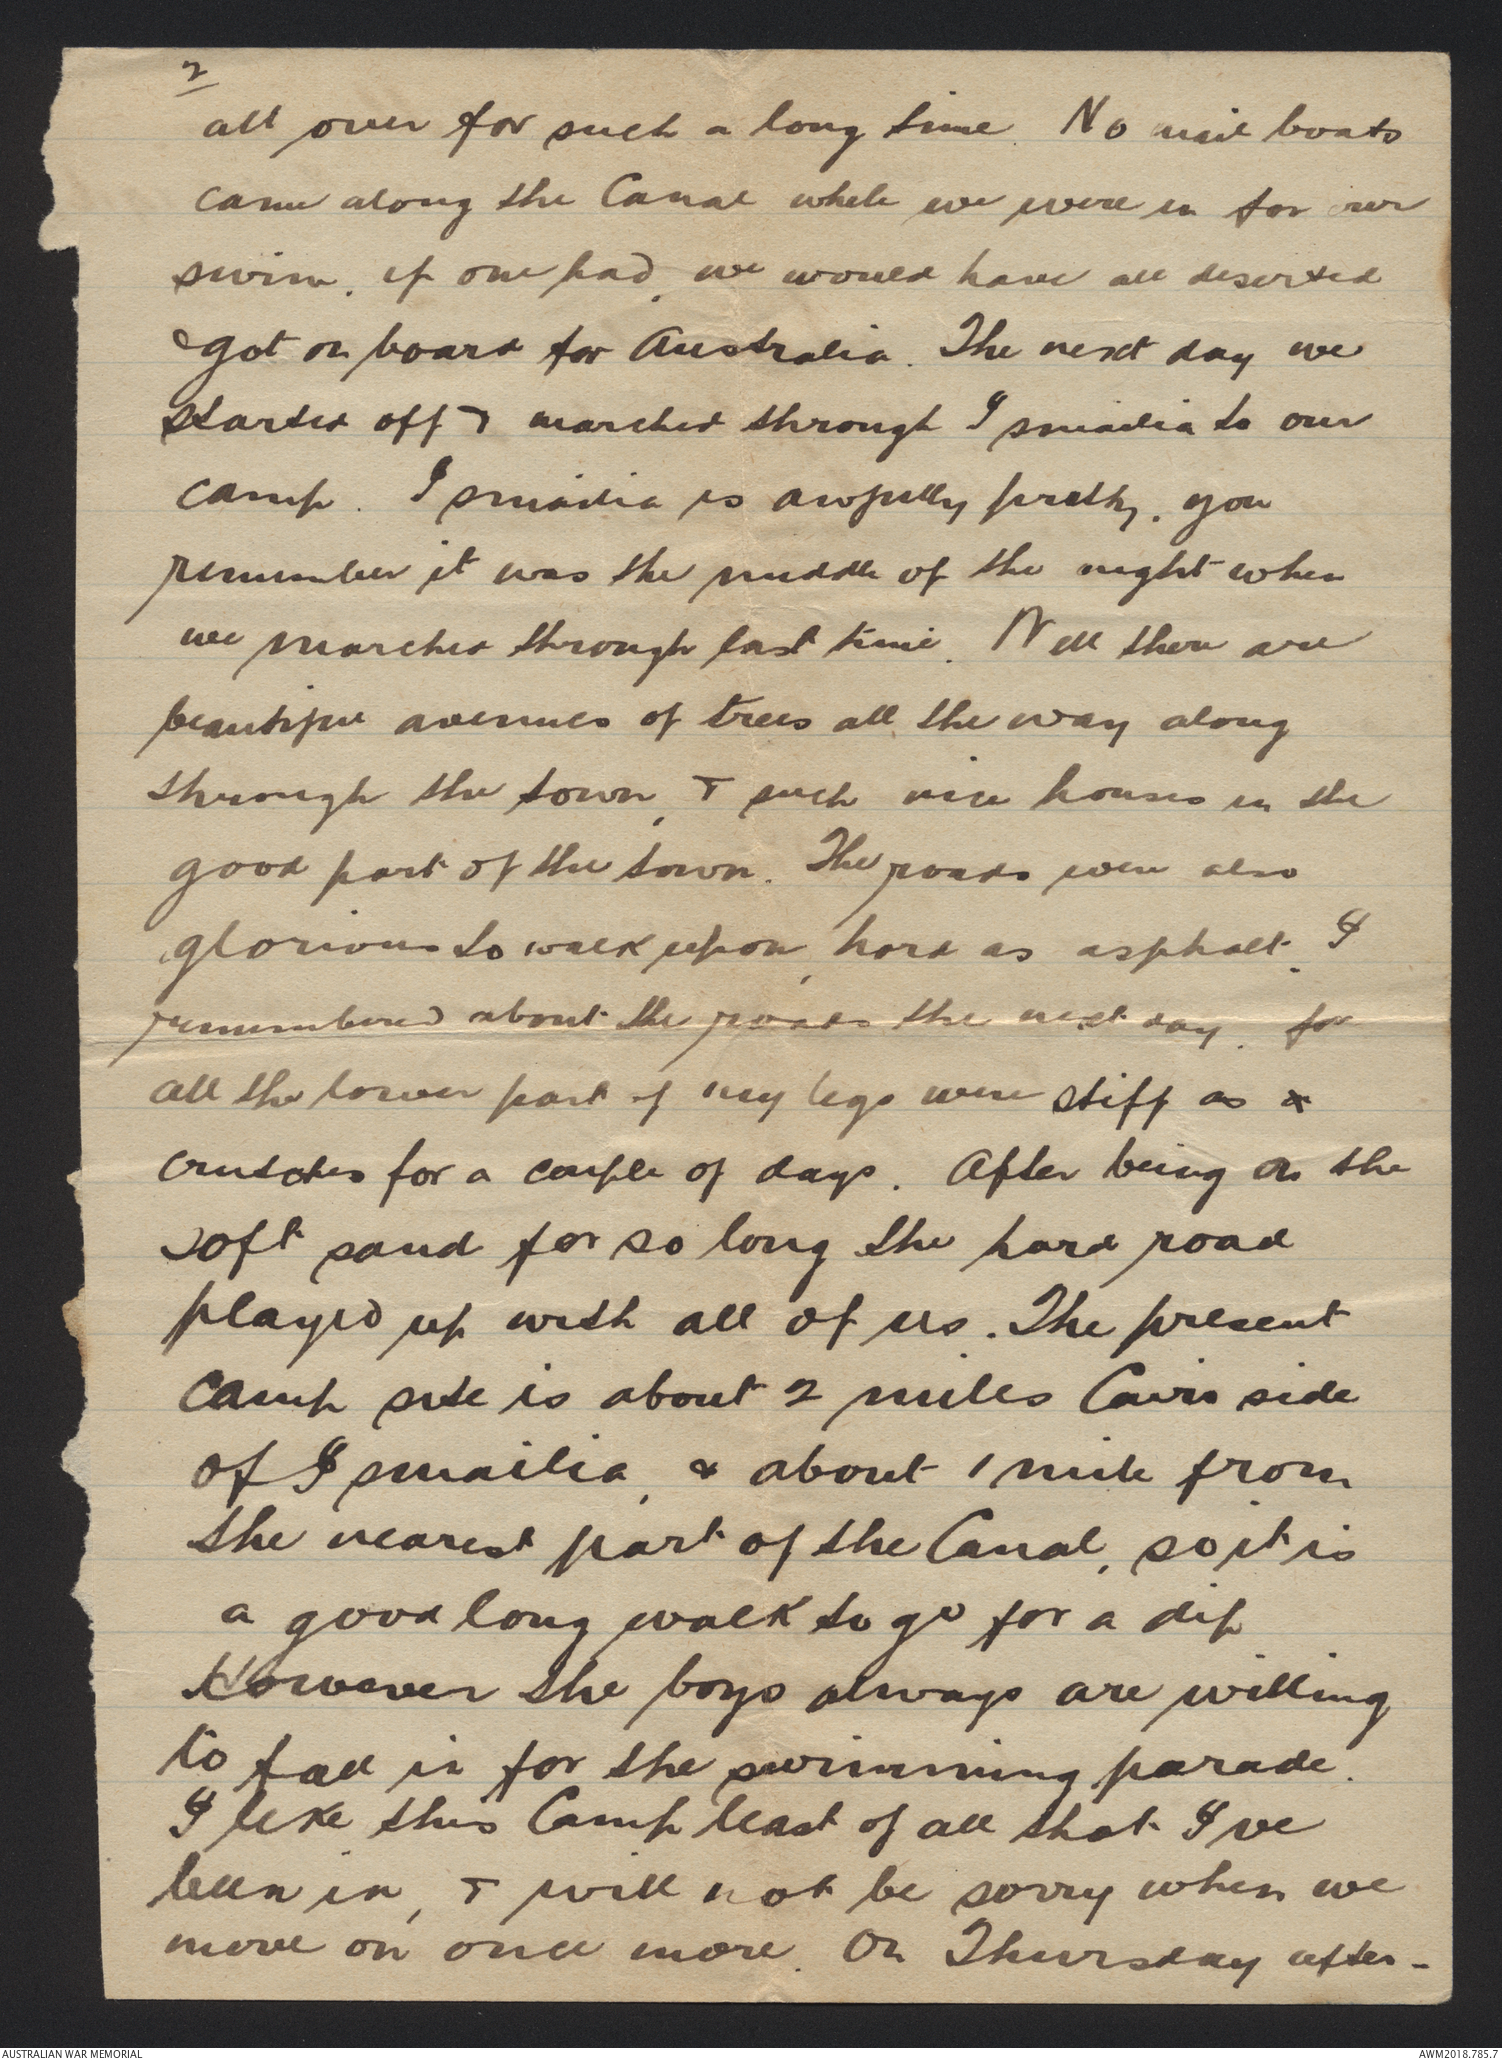 2
all over for such a long time. No mail boats
came along the Canal while we were in for our
swim, if one had, we would have all deserted
& got on board for Australia. The next day we
started off & marched through Ismailia to our
camp. Ismailia is awfully pretty, you
remember it was the middle of the night when
we marched through last time. Well there are
beautiful avenues of trees all the way along
through the town, & such nice houses in the
good part of the town. The roads were also
glorious to walk upon, hard as asphalt. I
remembered about the roads the next day, for
all the lower part of my legs were stiff as
crutches for a couple of days. After being on the
soft sand for so long the hard road
played up with all of us. The present
camp site is about 2 miles Cairo side
of Ismailia, & about 1 mile from
the nearest part of the Canal, so it is
a good long walk to go for a dip
However the boys always are willing
to fall in for the swimming parade.
I like this Camp least of all that I've
been in, & will not be sorry when we
move on once more. On Thursday after-
AUSTRALIAN WAR MEMORIAL
AWM2018.785.7